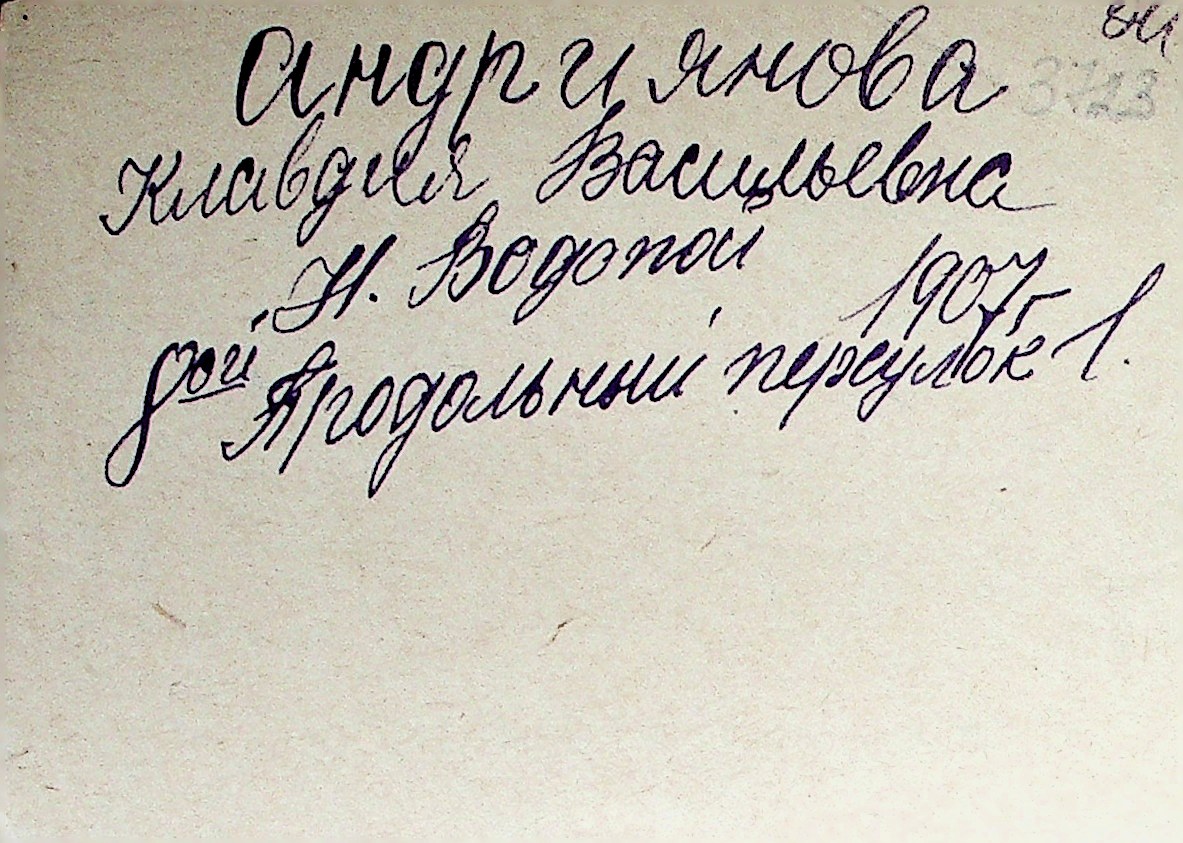 Андриянова
3723
Клавдия Васильевна
Н. Водопой 1907 г
8ой Продольный переулок 1.